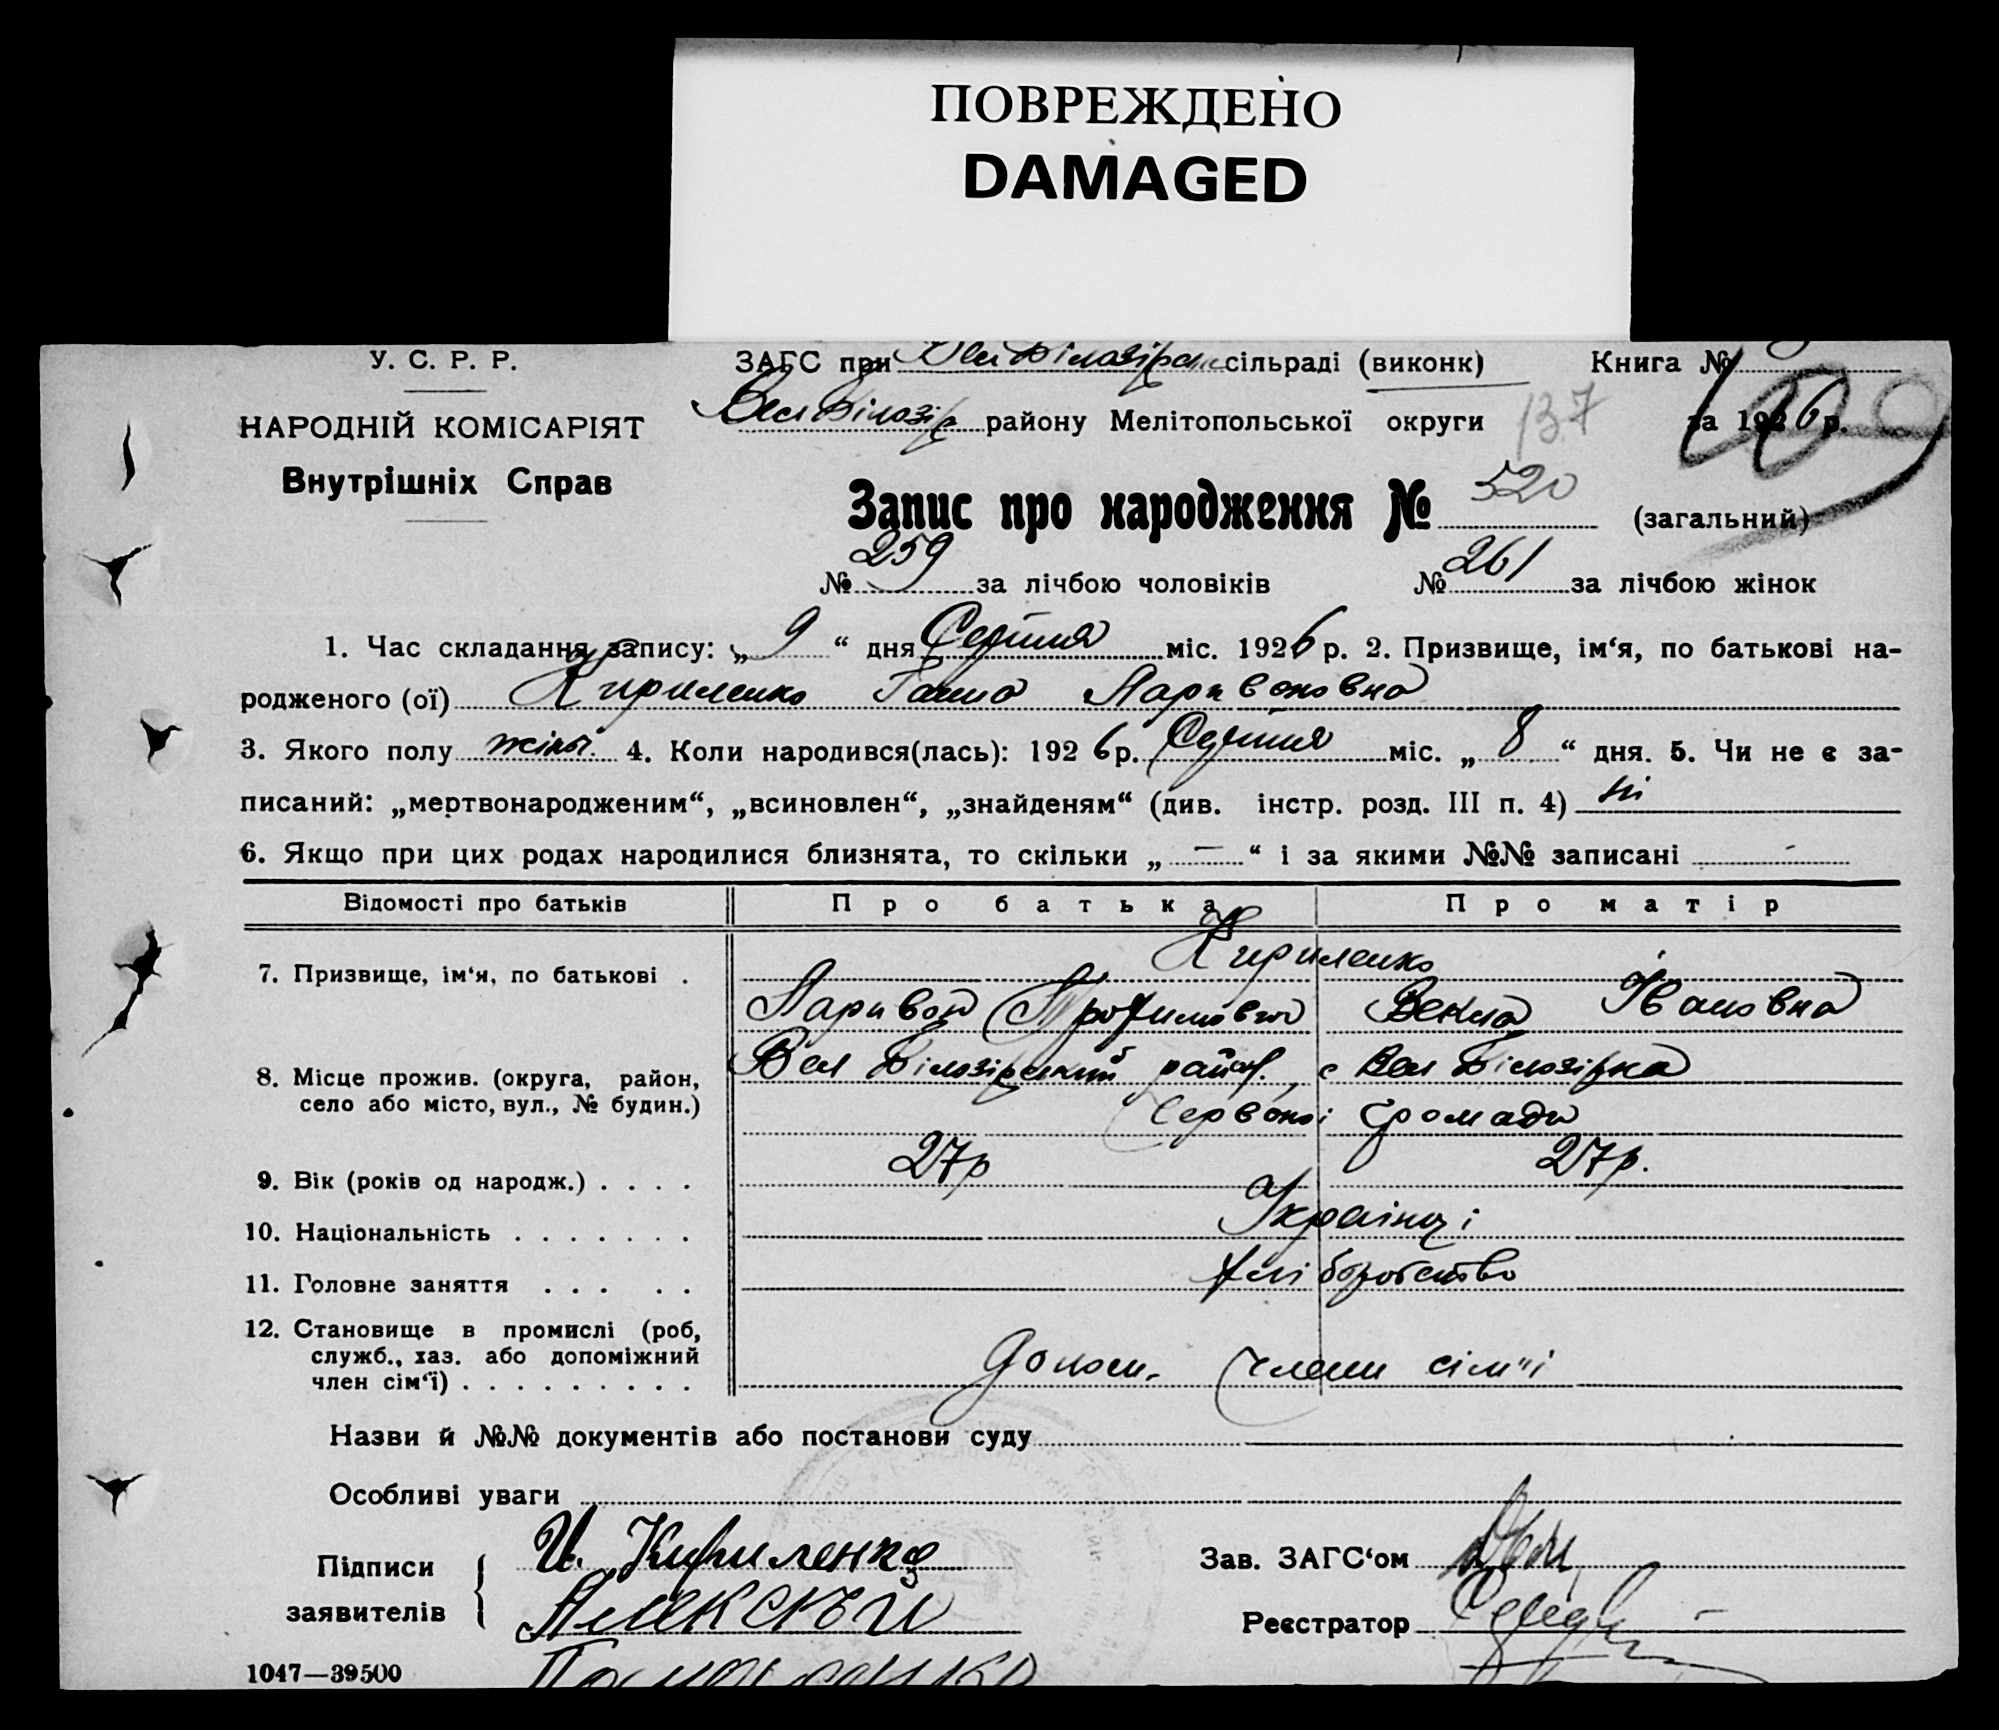 ПОВРЕЖДЕНО
DAMAGED
У. С. Р. Р.
НАРОДНІЙ КОМІСАРІЯТ
Внутрішніх Справ
ЗАГС при Вел Білозірськ сільраді (виконк) Книга №
Вел Білозір району Мелітопольської округи 137 за 1926 р.
Запис про народження № 520 (загальний)
№ 259 за лічбою чоловіків № 261 за лічбою жінок
1. Час складання запису: „ 9 “ дня Серпня міс. 1926 р. 2. Призвище, ім‘я, по батькові на-
родженого (ої) Кириленко Ганна Ларивоновна
3. Якого полу жіноч. 4. Коли народився(лась): 192 6 р. Серпня міс. „ 8 “ дня. 5. Чи не є за-
писаний: „мертвонародженим“, „всиновлен“, „знайденям“ (див. інстр. розд. III п. 4) ні
6. Якщо при цих родах народилися близнята, то скільки „ — “ і за якими №№ записані -
Відомості про батьків Про батька Про матір
7. Призвище, ім‘я, по батькові . Кириленко
Ларивон Трофимович Векла Івановна
8. Місце прожив. (округа, район,
село або місто, вул., № будин.)
Вел Білозірський район. с Вел Білозірка
Червоної Громади
9. Вік (років од народж.) . . . . 27р 27р.
10. Національність . . . . . . . Українці
11. Головне заняття . . . . . Хліборобство
12. Становище в промислі (роб,
служб., хаз. або допоміжний
член сім‘ї) . . . . . . . . . Допом. члени сім"ї
Назви й №№ документів або постанови суду
Особливі уваги
Підписи
заявителів
И. Кириленко
Алексѣй
Зав. ЗАГС‘ом
Реєстратор
1047—39500